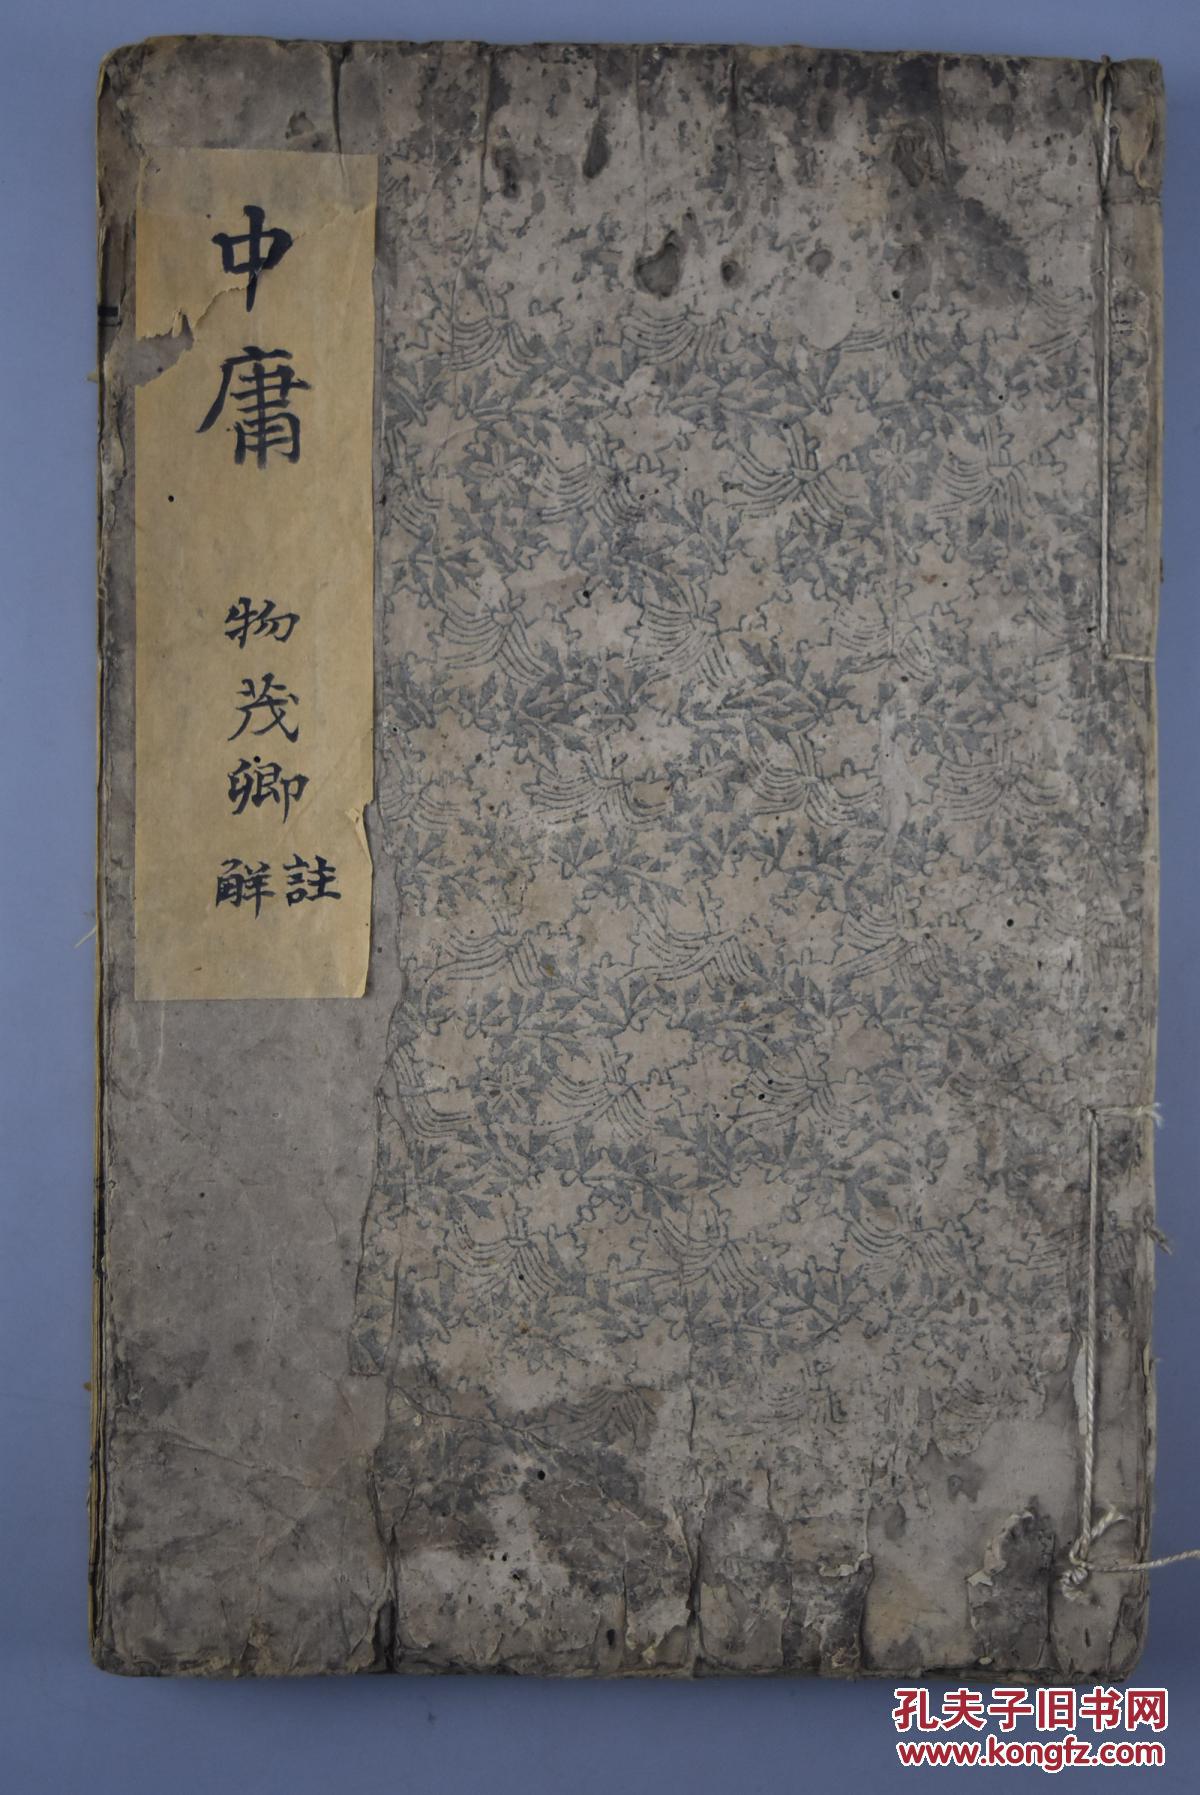 中庸
物茂卿
註解
孔夫子旧书网
www.kongfz.com